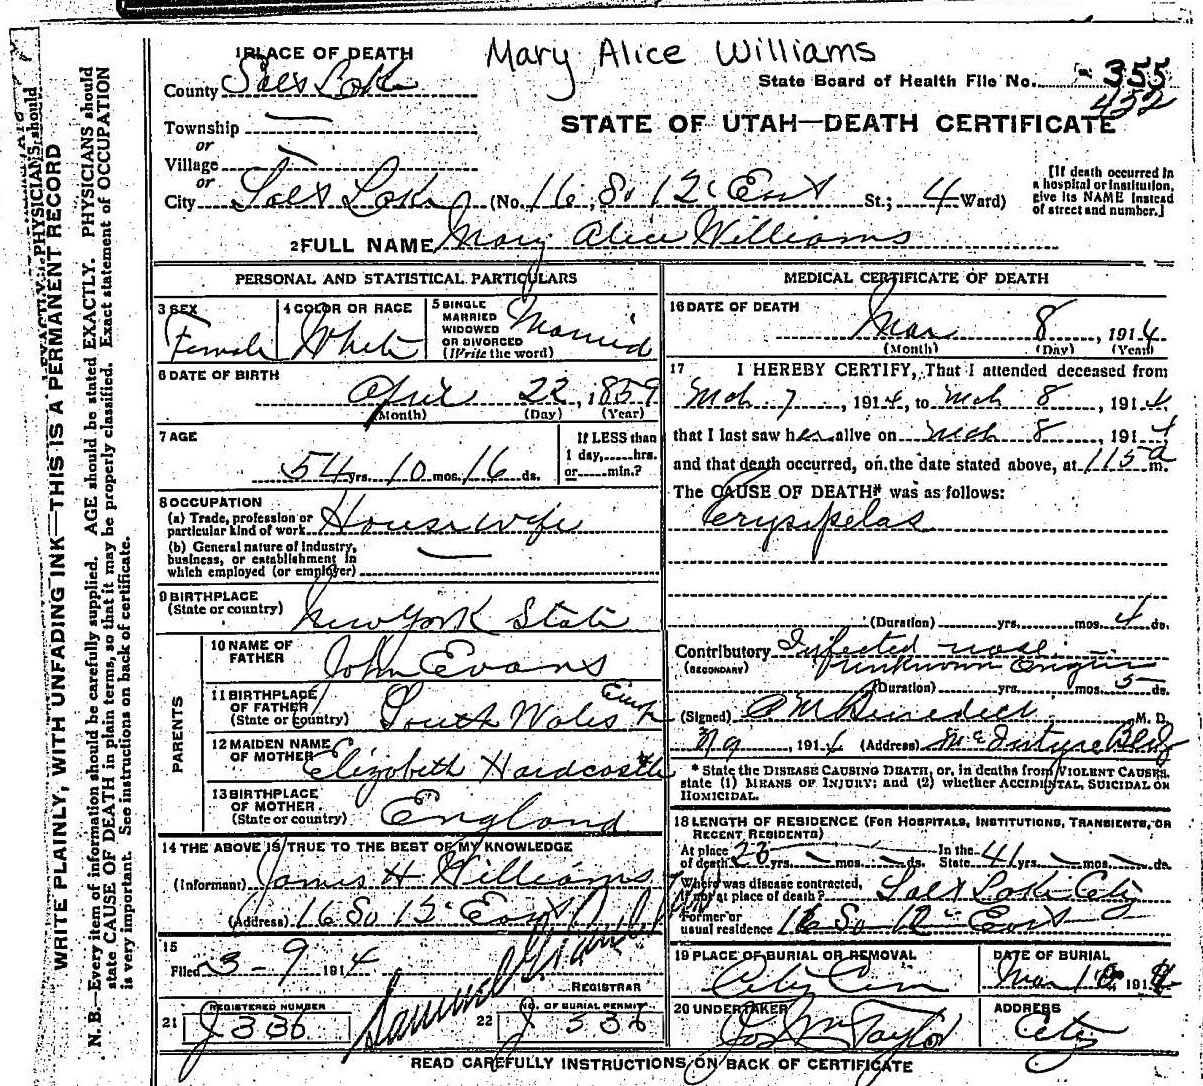 Mary Alice Williams
1 PLACE OF DEATH
County Salt Lake
State Board of Health File No. 355
452
Township —
or
Village —
or
STATE OF UTAH—DEATH CERTIFICATE
City Salt Lake (No. 16 So 12 East St.; 4 Ward)
[If death occurred in
a hospital or institution,
give its NAME instead
of street and number.]
2 FULL NAME Mary Alice Williams
PERSONAL AND STATISTICAL PARTICULARS
3 SEX
Female
4 COLOR OR RACE
White
5 SINGLE
MARRIED
WIDOWED
OR DIVORCED
(Write the word)
Married
6 DATE OF BIRTH
April 22, 1859
(Month) (Day) (Year)
7 AGE
54 yrs. 10 mos. 16 ds.
If LESS than
1 day,......hrs.
or......min.?
8 OCCUPATION
(a) Trade, profession or
particular kind of work Housewife
(b) General nature of industry,
business, or establishment in
which employed (or employer) —
9 BIRTHPLACE
(State or country) New York State
PARENTS
10 NAME OF
FATHER John Evans
11 BIRTHPLACE
OF FATHER
(State or country) South Wales
12 MAIDEN NAME
OF MOTHER Elizabeth Hardcastle
13 BIRTHPLACE
OF MOTHER
(State or country) England
14 THE ABOVE IS TRUE TO THE BEST OF MY KNOWLEDGE
(Informant) James H Williams
(Address) 16 So 12 East
15
Filed 3-9 1914
REGISTRAR
21 REGISTERED NUMBER
J 336
22 NO. OF BURIAL PERMIT
J 336
MEDICAL CERTIFICATE OF DEATH
16 DATE OF DEATH
Mar 8, 1914
(Month) (Day) (Year)
17 I HEREBY CERTIFY, That I attended deceased from
Mch 7, 1914, to Mch 8, 1914
that I last saw her alive on Mch 8, 1914
and that death occurred, on the date stated above, at 115 a m.
The CAUSE OF DEATH* was as follows:
Erysipelas
(Duration) yrs. mos. 4 ds.
Contributory Infected nose
(SECONDARY) unknown
(Duration) yrs. mos. 5 ds.
(Signed) Benedict M. D.
3/9, 1914 (Address) McIntyre Bldg
* State the DISEASE CAUSING DEATH, or, in deaths from VIOLENT CAUSES,
state (1) MEANS OF INJURY; and (2) whether ACCIDENTAL, SUICIDAL OR
HOMICIDAL.
18 LENGTH OF RESIDENCE (FOR HOSPITALS, INSTITUTIONS, TRANSIENTS, OR
RECENT RESIDENTS)
At place of death 23 yrs. — mos. — ds. In the State 41 yrs. — mos. — ds.
Where was disease contracted,
if not at place of death? Salt Lake City
Former or
usual residence 16 So 12 East
19 PLACE OF BURIAL OR REMOVAL
City Cem
DATE OF BURIAL
Mar 10 191
20 UNDERTAKER
Taylor
ADDRESS
City
READ CAREFULLY INSTRUCTIONS ON BACK OF CERTIFICATE
WRITE PLAINLY, WITH UNFADING INK—THIS IS A PERMANENT RECORD
N. B.—Every item of information should be carefully supplied. AGE should be stated EXACTLY. PHYSICIANS should
state CAUSE OF DEATH in plain terms, so that it may be properly classified. Exact statement of OCCUPATION
is very important. See instructions on back of certificate.